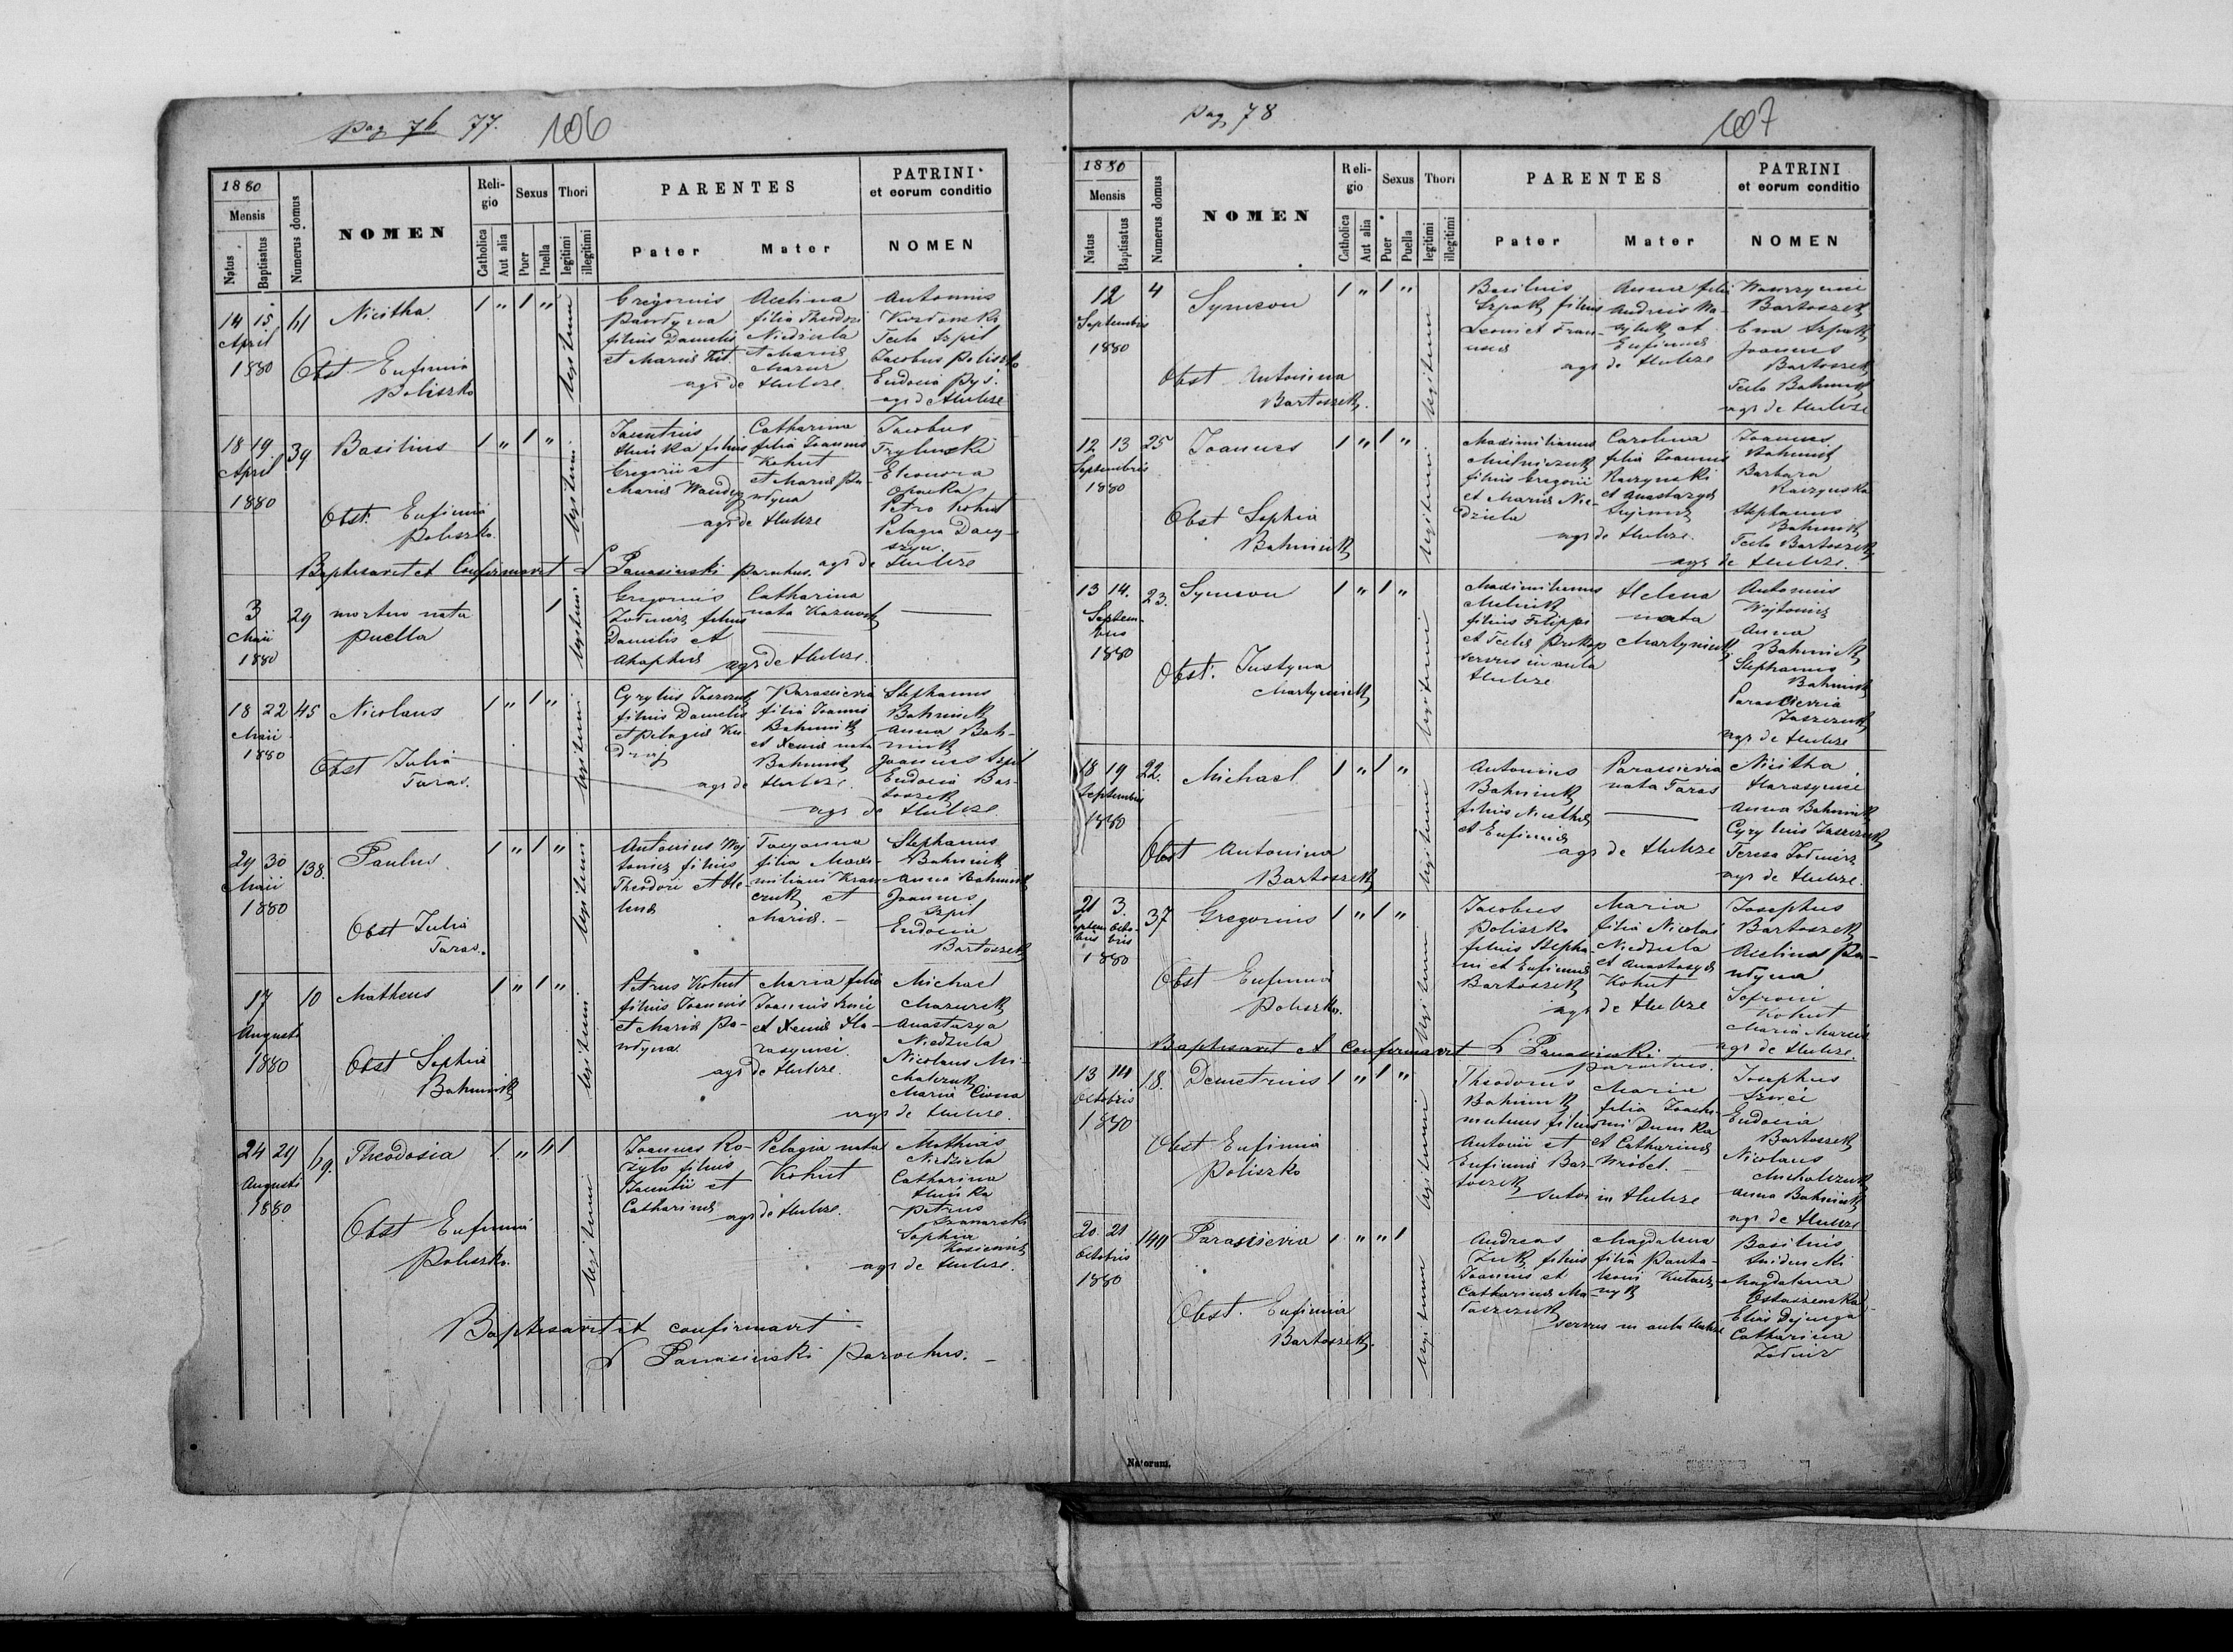 pag 76 77. 106
1880
Mensis
Natus
Baptisatus
Numerus domus
NOMEN
Religio
Catholica
Aut alia
Sexus
Puer
Puella
Thori
legitimi
illegitimi
PARENTES
Pater
Mater
PATRINI
et eorum conditio
NOMEN
14 15
April
1880
Nicitha
1 " 1 "
Obst Eufimia
Poliszko
legitimi
Gregorius
Pawtyna
filius Danielis
et Maria
Akilina
filia Theodori
Niedziela
et Maria
Mazur
agr de Hulcze
Antonius
Tecla Szpil
Jacobus Poliszko
Eudocia Pys.
agr de Hulcze
18 19
April
1880
39
Basilius
1 " 1 "
Obst. Eufimia
Poliszko
legitimi
filius
Gregorii et
Maria
Catharina
filia Joannis
Kohut
et Maria Pa-
wtyna
agr de Hulcze
Jacobus
Eleonora
Petro Kohut
Pelagia
agr de Hulcze
Baptisavit et Confirmavit Panasinski parochus.
3
Maii
1880
29
mortuo nata
puella
1
legitimi
Gregorius
Zolnierz filius
Danielis et
Ahaphia
Catharina
nata
agr de Hulcze
18 22
Maii
1880
45
Nicolaus
1 " 1 "
Obst Julia
Taras.
legitimi
Cyrylus Jaszczuk
filius Danielis
et Pelagia
Parascievia
filia Joannis
Bahniuk
et Xenia nata
Bahniuk
agr de Hulcze.
Stephanus
Bahniuk
Anna Bah-
niuk
Joannes Szpil
Eudocia Bar-
toszek
agr de Hulcze
29 30
Maii
1880
138.
Paulus
1 " 1 "
Obst Julia
Taras.
legitimi
Antonius Woj
towicz filius
Theodori et He-
lena
Tacyanna
filia Maxi-
miliani Kraw-
czuk et
Maria. -
Stephanus
Bahniuk
Anna Bahniuk
Joannes
Szpil
Eudocia
Bartoszek
17
Augusti
1880
10
Matheus
1 " 1 "
Obst Sophia
Bahniuk
legitimi
Petrus Kohut
filius Joannis
et Maria Pa-
wtyna
Maria filia
Joannis
et Xenia Ha-
rasymci.
agr de Hulcze.
Michael
Mazurek
Anastazya
Niedziela
Nicolaus Mi-
chalczuk
Maria
agr de Hulcze.
24 29
Augusti
1880
Theodosia
1 " " 1
Obst Eufimia
Poliszko.
legitimi
Joannes Ko-
zyto filius
et
Catharina
Pelagia nata
Kohut
agr de Hulcze.
Mathias
Niedziela
Catharina
Petrus
Sophia
agr de Hulcze.
Baptisavit et confirmavit
Panasinski Parochus.
pag 78 107
1880
Mensis
Natus
Baptisatus
Numerus domus
NOMEN
Religio
Catholica
Aut alia
Sexus
Puer
Puella
Thori
legitimi
illegitimi
PARENTES
Pater
Mater
PATRINI
et eorum conditio
NOMEN
12
Septembris
1880
4
Symeon
1 " 1 "
Obst Antonina
Bartoszek.
legitimi
Basilius
Szpak filius
Leoni et Fran-
Anna filia
Andreis
et
Eufimia
agr de Hulcze
Bartoszek
Ewa Szpak
Joannes
Bartoszek
Tecla Bahniuk
agr de Hulcze
12 13
Septembris
1880
25
Joannes
1 " 1 "
Obst Sophia
Bahniuk
legitimi
Maximilianus
Melniczuk
filius Gregorii
et Maria Nie-
dziela
Carolina
filia Joannis
Raczynski
et Anastazya
agr de Hulcze.
Joannes
Bahniuk
Barbara
Raczynska
Stephanus
Bahniuk
Tecla Bartoszek
agr de Hulcze.
13 14.
Septem-
bris
1880
23.
Symeon
1 " 1 "
Obst. Justyna
Martyniuk
legitimi
Maximilianus
Melnik
filius Filippi
et Tecla Prokop
servus in aula
Hulcze
Helena
nata
Martyniuk
Antonius
Wojtowicz
Anna
Bahniuk
Stephanus
Bahniuk
Parascievia
Jaszczuk
agr de Hulcze
18 19
Septembris
1880
22.
Michael
1 " 1 "
Obst Antonina
Bartoszek
legitimi
Antonius
Bahniuk
filius Nicitha
et Eufimia
Parascievia
nata Taras
agr de Hulcze
Nicitha
Harasymci
Anna Bahniuk
Cyrylus Jaszczuk
Teresa Zolnierz
agr de Hulcze.
21 3.
Septem-
bris Octo-
bris
1880
37
Gregorius
1 " 1 "
Obst Eufimia
Poliszko.
legitimi
Jacobus
Poliszko
filius Stepha-
ni et Eufimia
Bartoszek
Maria
filia Nicolai
Niedziela
et Anastazya
Kohut
agr de Hulcze
Josephus
Bartoszek
Akilina Pa-
wtyna
Sofroni
Kohut
Maria
agr de Hulcze.
Baptisavit et Confirmavit Panasinski
parochus.
13 14
Octobris
1880
18.
Demetrius
1 " 1 "
Obst Eufimia
Poliszko
legitimi
Theodorus
Bahniuk
filius
Antonii et
Eufimia Bar-
toszek
Maria
filia Joachi-
mi Dumka
et Catharina
Wrobel. -
sutor in Hulcze
Josephus
Eudocia
Bartoszek
Nicolaus
Michalczuk
Anna Bahniuk
agr de Hulcze
20 21
Octobris
1880
Parascievia
1 " " 1
Obst. Eufimia
Bartoszek.
legitimi
Andreas
Zuk filius
Joannis et
Catharina
Magdalena
filia Panta-
leoni
servus in aula Hulcze
Basilius
Magdalena
Ostaszewska
Elias
Catharina
Natorum.